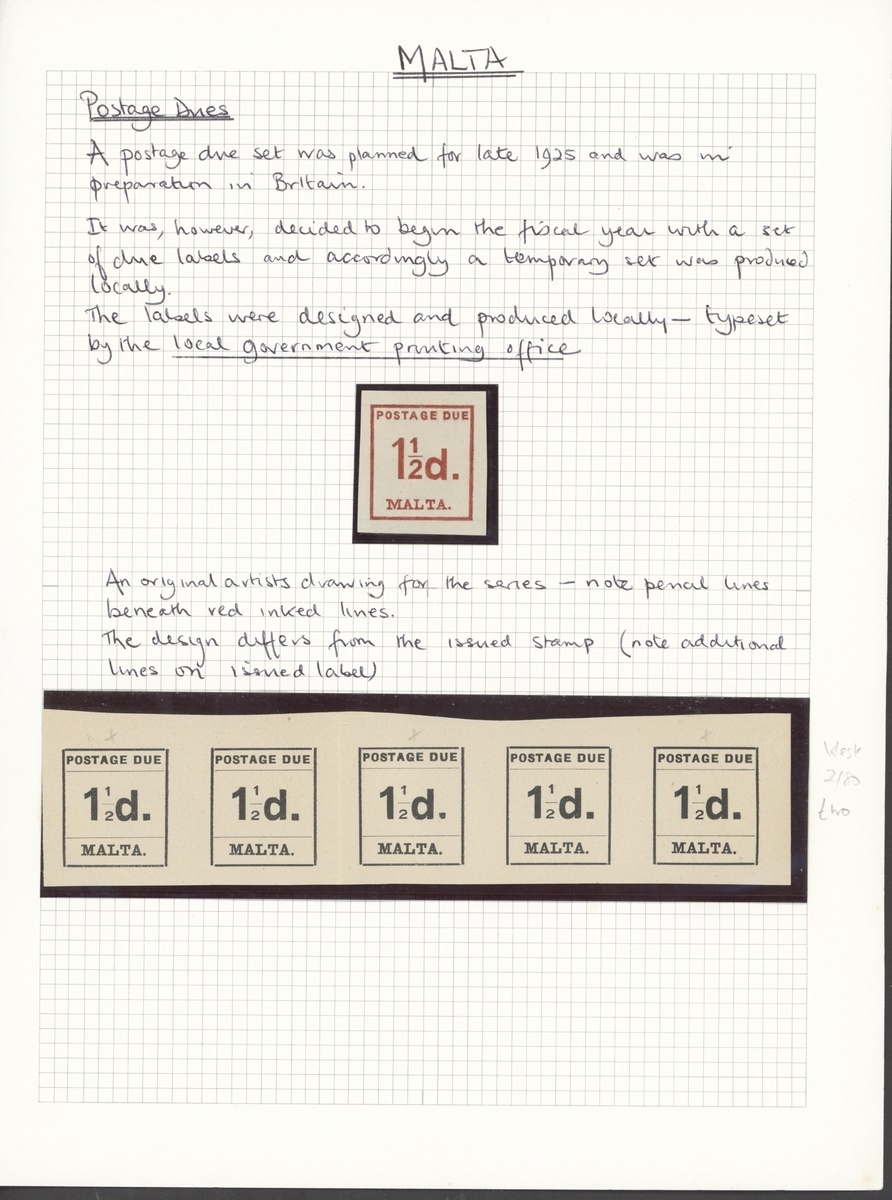 MALTA
Postage Dues
A postage due set was planned for late 1925 and was in
preparation in Britain.
It was, however, decided to begin the fiscal year with a set
of due labels and accordingly a temporary set was produced
locally.
The labels were designed and produced locally — typeset
by the local government printing office
POSTAGE DUE
1½d.
MALTA.
An original artists drawing for the series — note pencil lines
beneath red inked lines.
The design differs from the issued stamp (note additional
lines on issued label)
POSTAGE DUE POSTAGE DUE POSTAGE DUE POSTAGE DUE POSTAGE DUE
1½d. 1½d. 1½d. 1½d. 1½d.
MALTA. MALTA. MALTA. MALTA. MALTA.
two